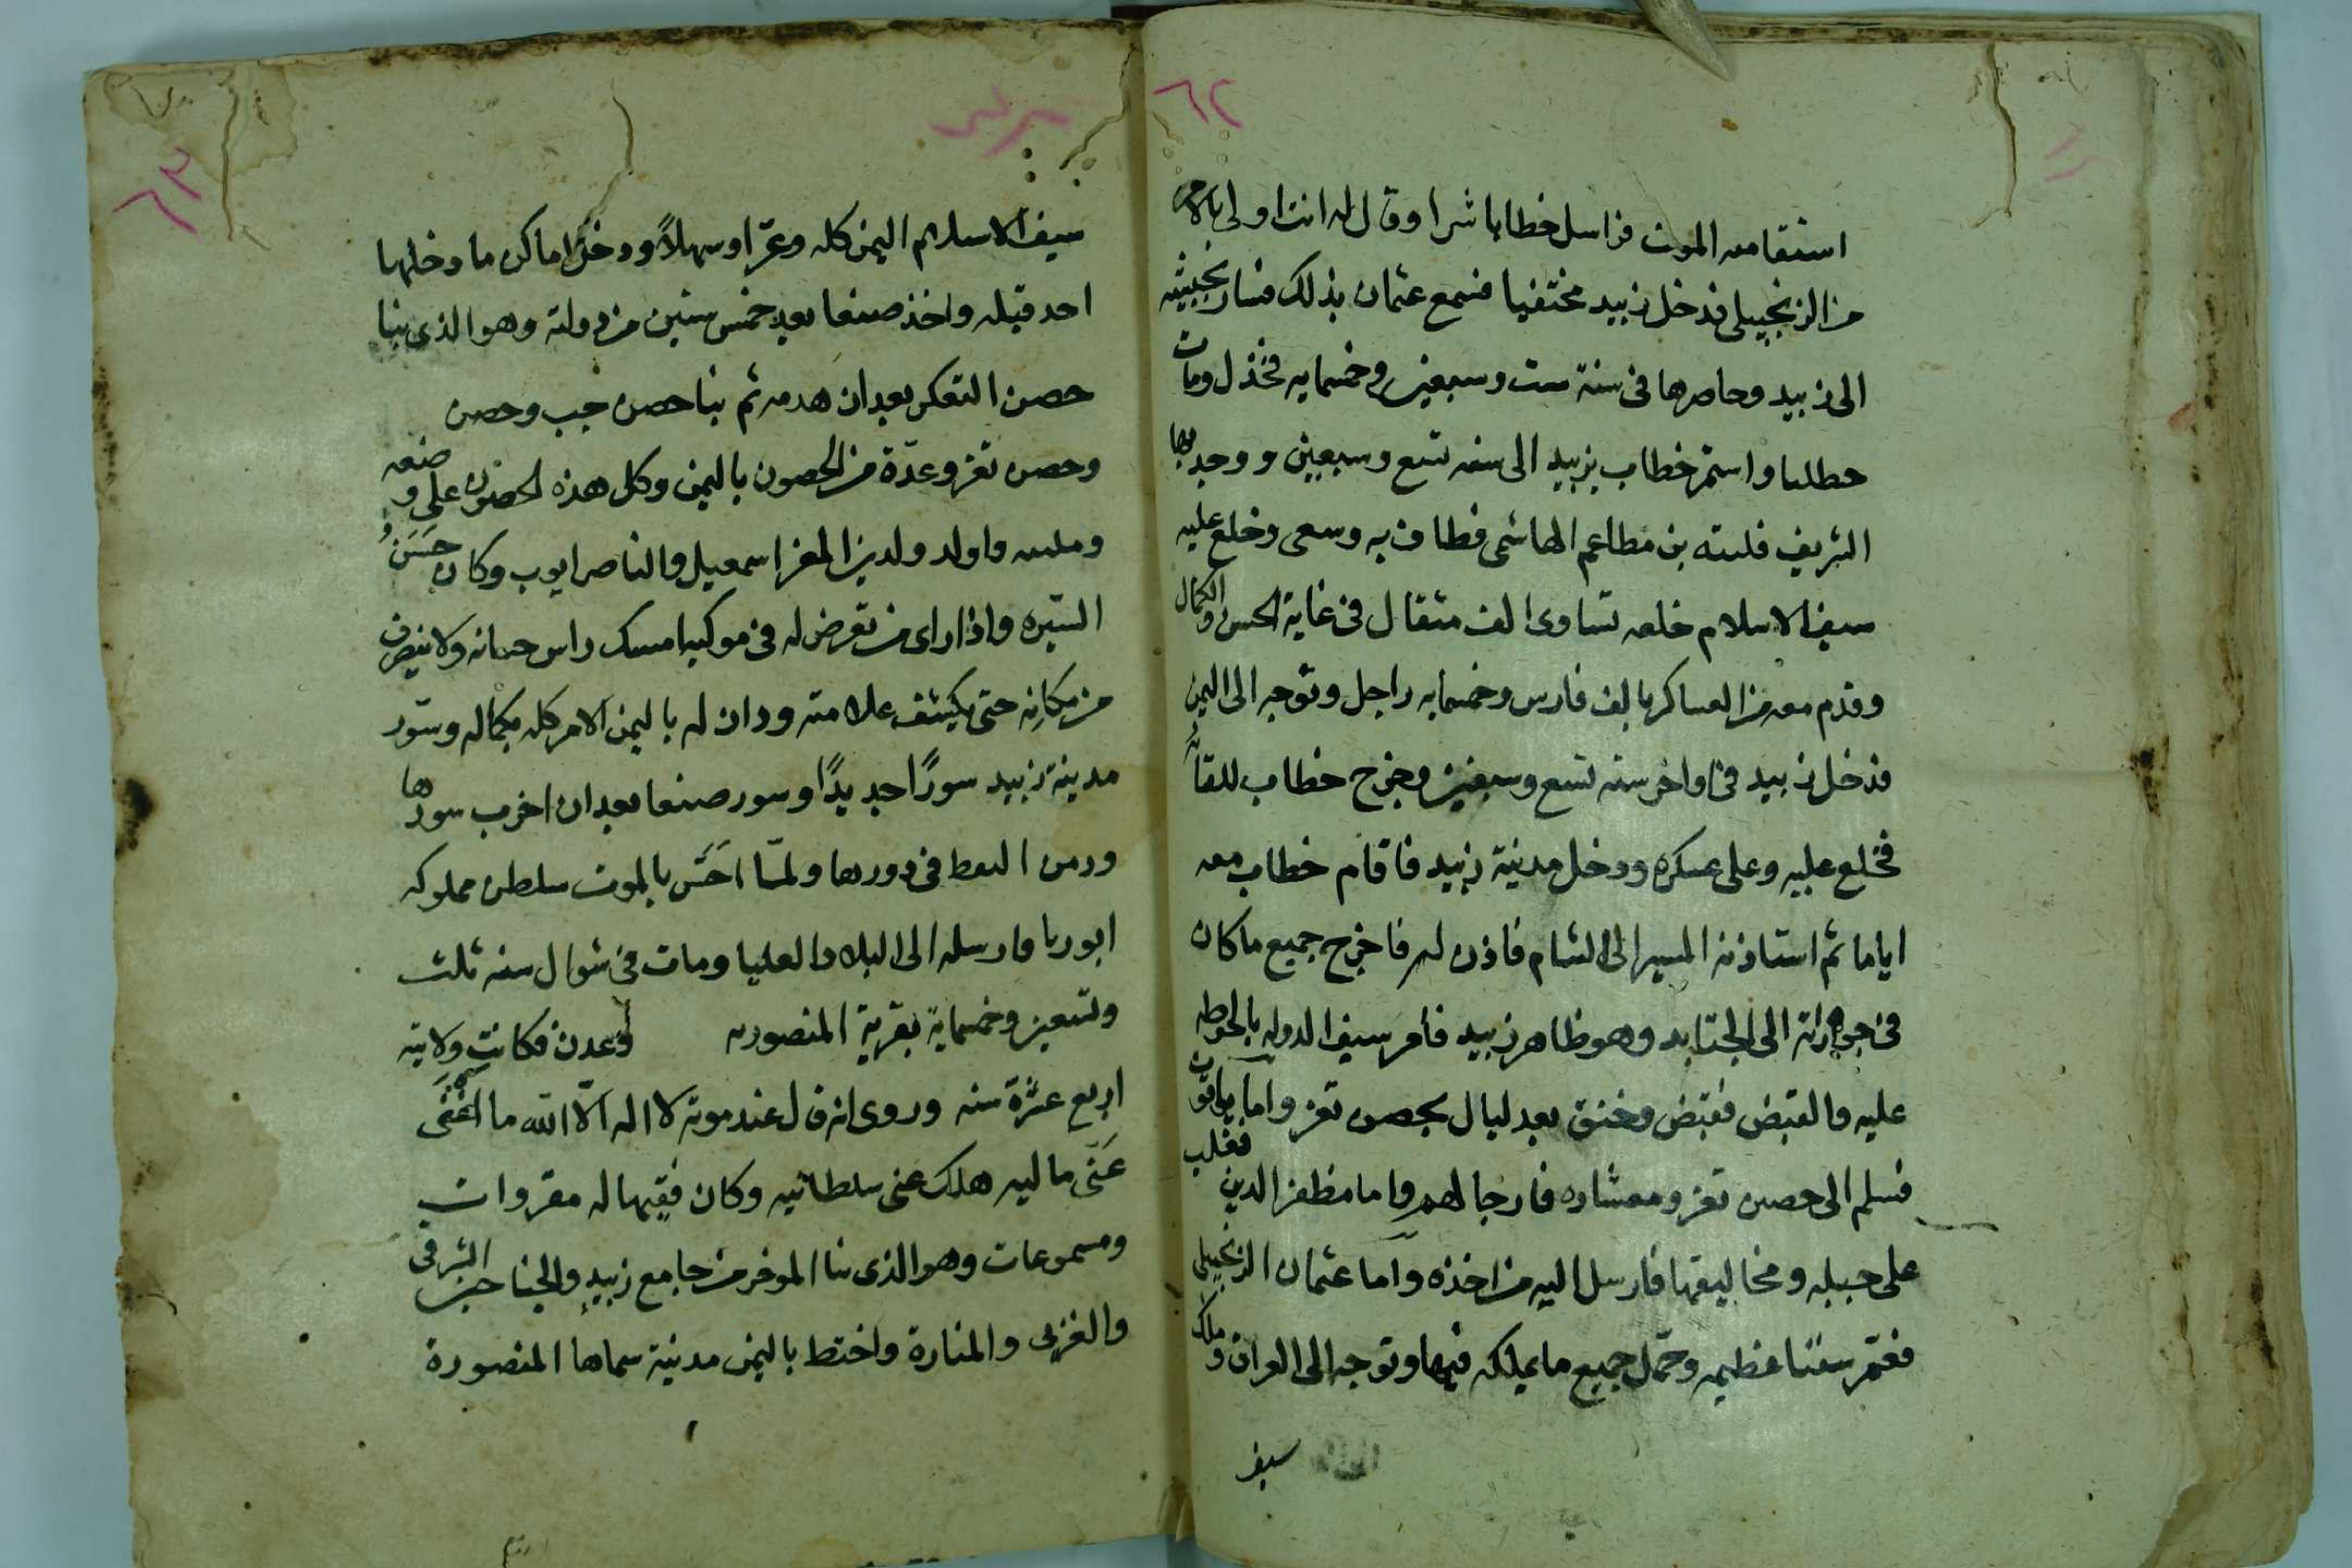 ٦٢
استقامه الموت فراسل خطابا شرا وقال له انت اولى بالامر
من الزنجيلى فدخل زبيد مختفيا فسمع عثمان بذلك فسار بجيشه
الى زبيد وحاصرها فى سنة ست وسبعين وخمسمايه فخذل ومات
حطلبا واستمر خطاب بزبيد الى سنه تسع وسبعين ووجد بها
الشريف فليته بن مطاعم الهاشمى فطاف به وسعى وخلع عليه
سيف الاسلام خلعه تساوى الف مثقال فى غاية الحسن والكمال
وقدم معه من العساكر بالف فارس وخمسمايه راجل وتوجه الى اليمن
فدخل زبيد فى اواخر سنه تسع وسبعين وخرج خطاب للقائه
فخلع عليه وعلى عسكره ودخل مدينة زبيد فاقام خطاب معه
اياما ثم استاذنه المسير الى الشام فاذن له فاخرج جميع ما كان
فى الى الجنابد وهو ظاهر زبيد فأمر سيف الدوله بالحوطه
عليه والقبض فقبض وخنق بعد ليال بحصن تعز واما ياقوت
فسلم الى حصن تعز ومعشاره فارجا لهم واما مظفر الدين فغلب
على جبله ومخاليفها فارسل اليه من اخذه واما عثمان الزنجيلى
فعمر سفنا عظيمه وحمّل جميع ما يملكه فيها وتوجه الى العراق وملك
سيف
٦٣
سيف الاسلام اليمن كله وعرًا وسهلاً ودخل اماكن ما دخلها
احد قبله واخذ صنعا بعد خمس سنين من دولته وهو الذى بنا
حصن التعكر بعد ان هدمه ثم بنا حصن جب وحصن
وحصن تعز وعدّة من الحصون باليمن وكل هذه الحصون على وضعه
واولد ولدين المعز اسمعيل والناصر ايوب وكان حَسَنُ
السيره واذا راى من تعرض له فى موكبه امسك راس حصانه ولا ينصرف
من مكانه حتى يكشف ظلامته ودان له باليمن الامر كله بكماله وسور
مدينة زبيد سورًا جديدًا وسور صنعا بعد ان اخرب سورها
ورمى النفط فى دورها ولمّا احَسَّ بالموت سلطن مملوكه
ابوربا وارسله الى البلاد العليا ومات فى شوال سنه ثلث
وتسعين وخمسماية بقرية المنصوره وعدن فكانت ولايته
اربع عشرة سنه وروى انه قال عند موته لا اله الّا الله ما اغنَى
عَنّى ماليه هلك عنى سلطانيه وكان فقيها له مقروات
ومسموعات وهو الذى بنا الموخر من جامع زبيد والجناحين الشرقى
والغربى والمنارة واختط باليمن مدينة سماها المنصورة